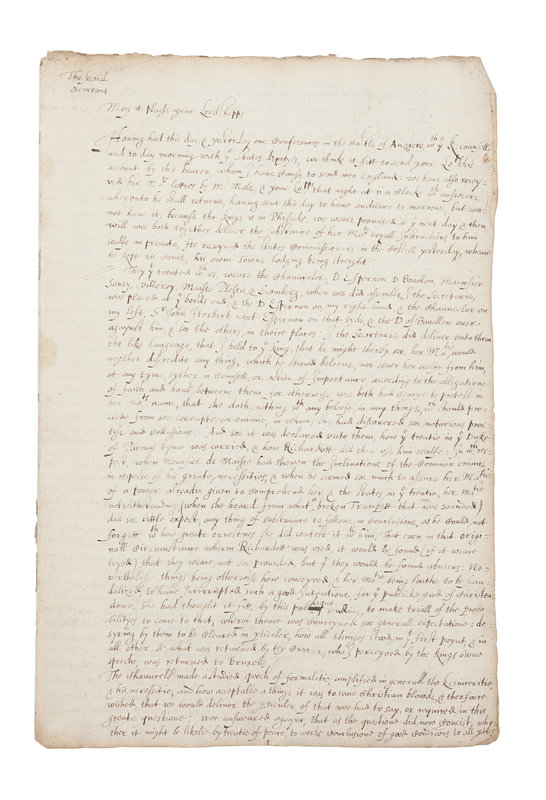 The second
Occurrant
May it please your Lordships
Having had this day & yesterday one Conference in the Castle of Angiers wth ye K. counsell
and to day morning with ye States deputyes, we thinke it fitt to send your Lops this
account by this bearer whom I have cause to send into England: we have also recey-
ved her Mats letters by Mr Mole, & your Lops that night at a Clock wth answear
whereonto he shall returne, having sent this day to have audience to morrow, but can-
not have it, because the King is in Phisicke, we weare promised it ye next day & then
will wee both together deliver the substance of her Mats royall Instructions to him
selfe in private, he receyved the States Commissioners in the Castle yesterday, where
he kept his Court, his owne Towne Lodging being streight:
They yt treated wth vs, weare the Chauncelor, D Espernon, D Bouillon, Mounsieur
Sancy, Villeroy, Maisse, Plessis, & Scomberg, when wee did assemble, I the Secretarie,
was placed at ye bords end, & the D Espernon on my right hand, & the Chauncelor on
my left, Sr John Herbert next Espernon on that syde, & the D of Bouillon over
against him & so the others in theire places: I the Secretarie did deliver vnto them
the like language, that I held to ye King, that he might thereby see, her Mats would
neyther discredite any thing, which he should believe, nor sever her cause from him
at any tyme, eyther in Counsell, or action of Importance according to the obligations
of faith and honor between them, for otherwise wee both had Charge to protest in
her Mats name, that she doth nothing wth any beliefe in any things, wch should pro-
ceede from so corrupte an enimie, in whom, she had discovered so notorious prac-
tise and Collusion. And so it was declared vnto them, how ye treatie in ye Duke
of Parmas tyme was carried, & how Richardott did then vse him selfe: In wch res-
pect, when Mounsier de Maisse had shewen the Inclinations of the Common enimie
in respecte of his greate necessities, & when he seemed so much to assure her Matie
of a power already given to Comprehend her & the States in ye treatie, her Matie
notwithstanding (when she heard from what broken Trumpett that was sounded)
did so little expect, any thing of substance to followe in Conclusion, as he could not
forgett wth how greate ernestnes she did contest it wth him, That even in that origi-
nall Circumstance wherin Richardott was vsed, it would be found (if it weare
tryed) that they weare not so provided, but yt they would be found abusers: Ne-
vertheless things being otherwise here conceyved, & her Matie being loathe to be scan-
dalized, to have Interrupted such a good Intention, for ye publicke good of Christen-
dome, she had thought it fitt, by this publique sending, to make triall of the proba-
bilityes to come to that, whereof theare was conceyved so generall expectations: de-
syring by them to be Cleared in perticuler, how all things stand in ye first poynt, & in
all other, & what was returned by the Currier, who I perceyved by the Kings owne
speeche, was returned to Bruxells.
The Chauncelor made a studied speech of formalitie, amplified in generall the K. sinceritie,
& his necessitie, and how acceptable a thing it was to save Christian bloode, & therfoore
wished, that we would deliver the perticuler of that wee had to say, or required in this
greate question: wee answeared againe, that as the question did now consist, why-
ther it might be likelie by treatie of peace, to worke Conclusions of good Conditions to all ptyes